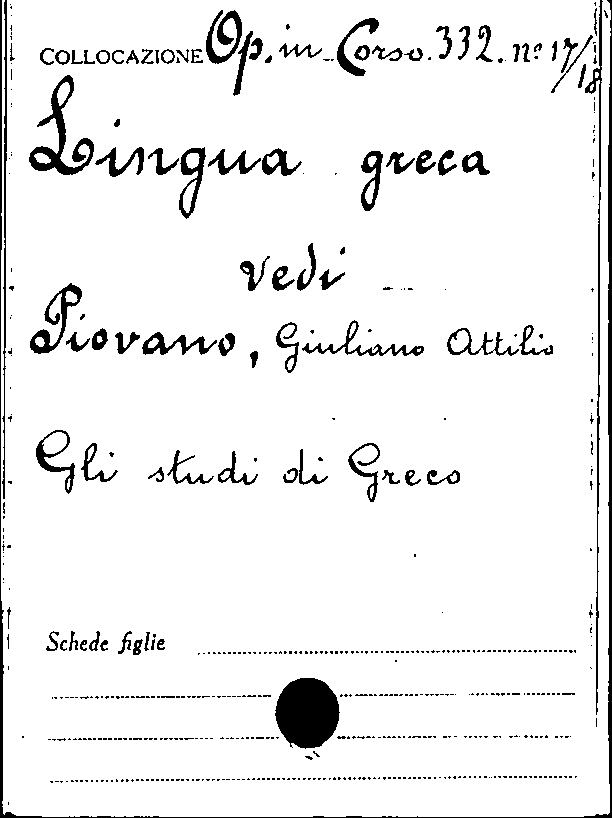 COLLOCAZIONE Op. in Corso. 332. nº 17/18
Lingua greca
vedi
Piovano, Giuliano Attilio
Gli studi di Greco
Schede figlie